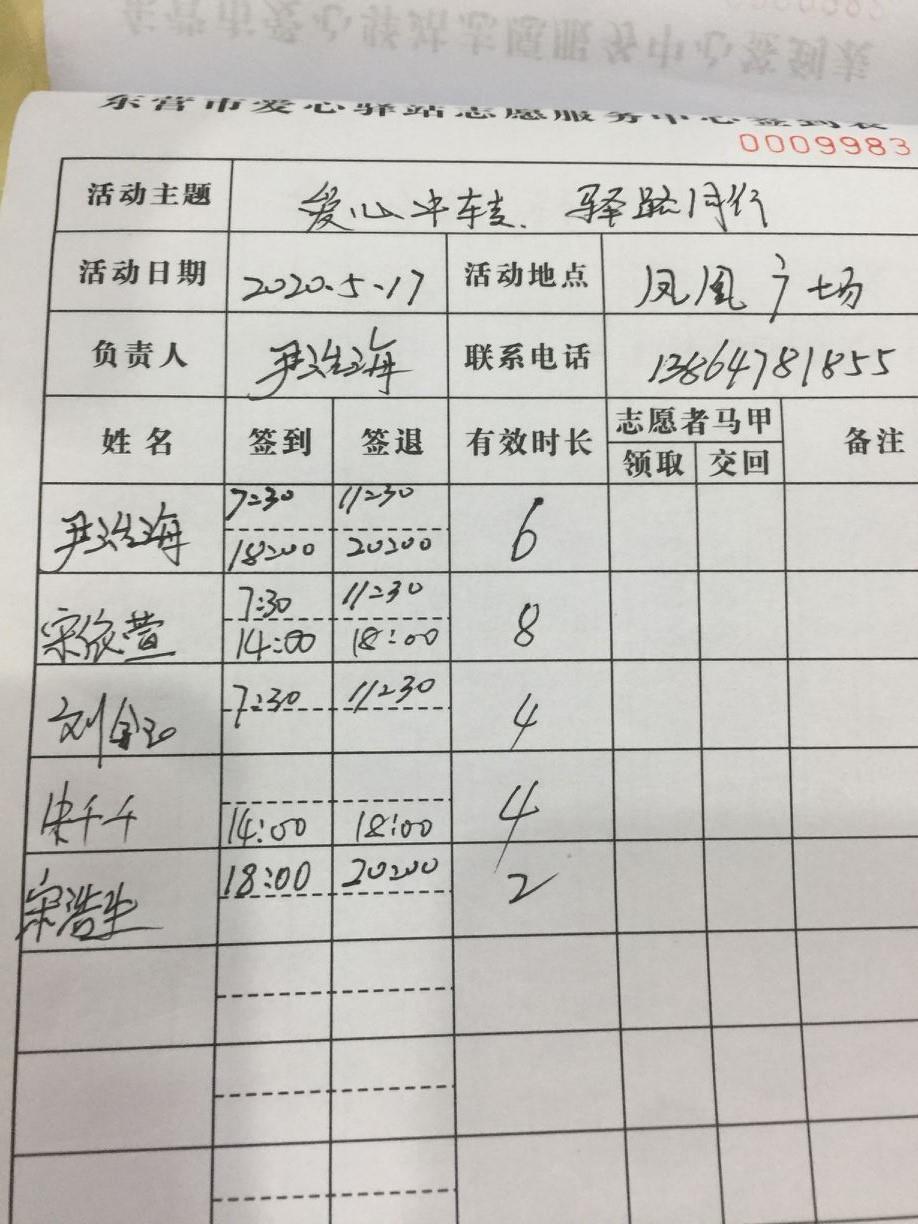 东营市爱心驿站志愿服务中心签到表
0009983
活动主题 爱心中转、驿路同行
活动日期 2020.5.17 活动地点 凤凰广场
负责人 尹浩海 联系电话 13864781855
姓名 签到 签退 有效时长 志愿者马甲 备注
领取 交回
尹浩海 7:30 11:30 6
18:00 20:00
宋依萱 7:30 11:30 8
14:00 18:00
7:30 11:30 4
宋千千 14:00 18:00 4
宋浩生 18:00 20:00 2